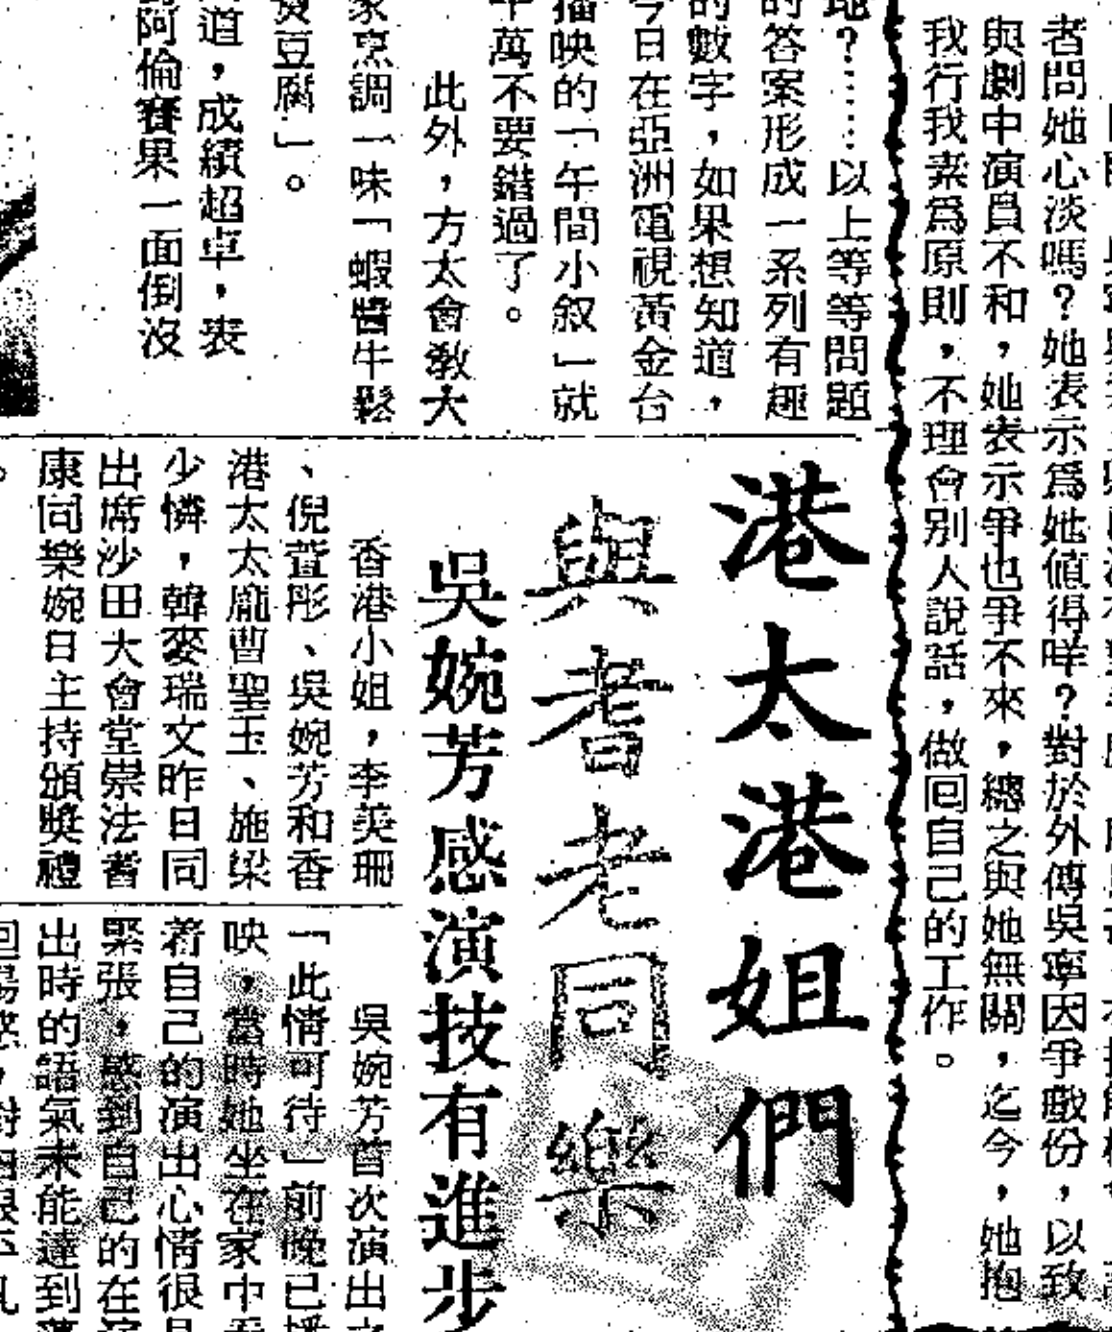 者問她心淡嗎？她表示爲她值得咩？對於外傳吳寧因爭戲份，以致
與劇中演員不和，她表示爭也爭不來，總之與她無關，迄今，她抱
我行我素爲原則，不理會別人說話，做回自己的工作。
地？……以上等等問題
的答案形成一系列有趣
的數字，如果想知道，
今日在亞洲電視黃金台
播映的「午間小叙」就
千萬不要錯過了。
此外，方太會教大
家烹調一味「蝦醬牛鬆
煑豆腐」。
道，成績超卓，表
阿倫賽果一面倒沒
港太港姐們
與耆老同樂
吳婉芳感演技有進步
香港小姐，李美珊
、倪萱彤、吳婉芳和香
港太太龐曹聖玉、施梁
少憐，韓麥瑞文昨日同
出席沙田大會堂崇法耆
康同樂婉日主持頒獎禮
。
吳婉芳首次演出之
「此情可待」前晚已播
映，當時她坐在家中看
着自己的演出心情很是
緊張，感到自己的在演
出時的語氣未能達到